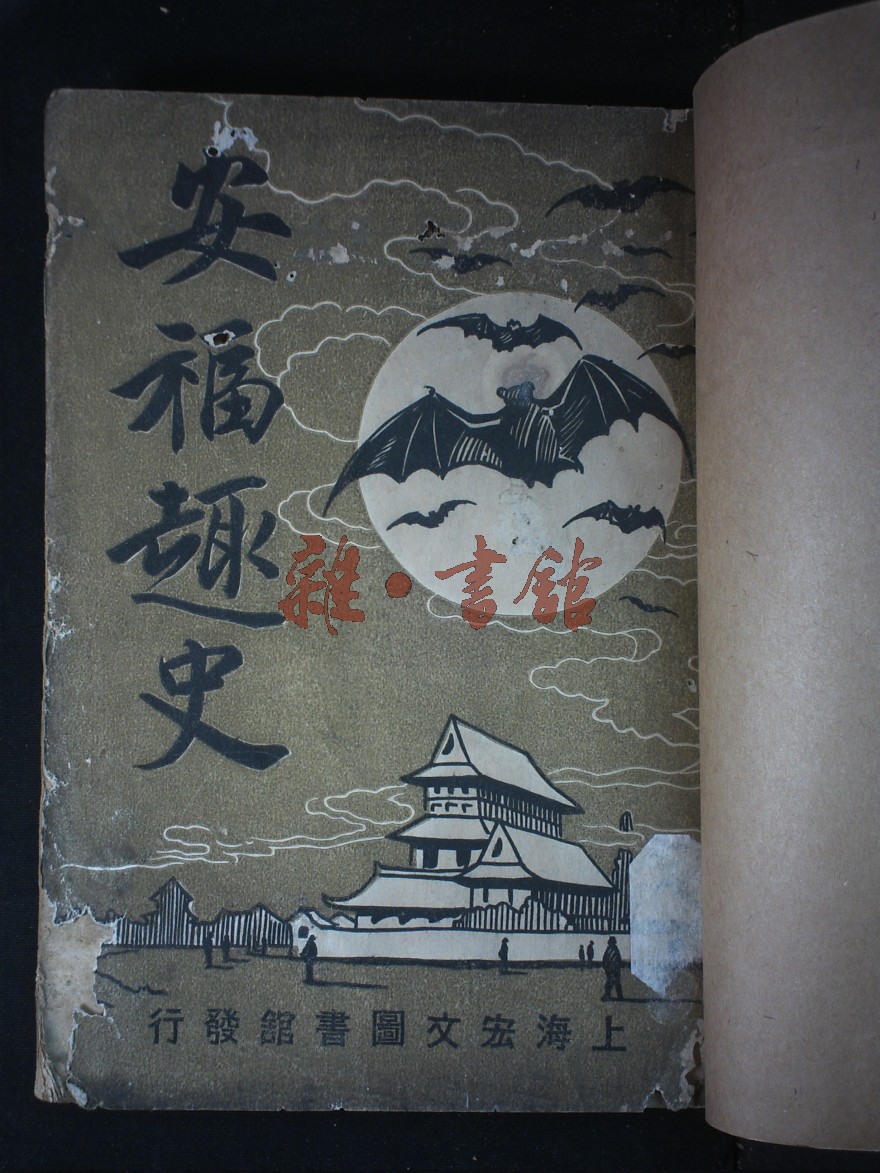 安福趣史
雜·書館
上海宏文圖書館發行